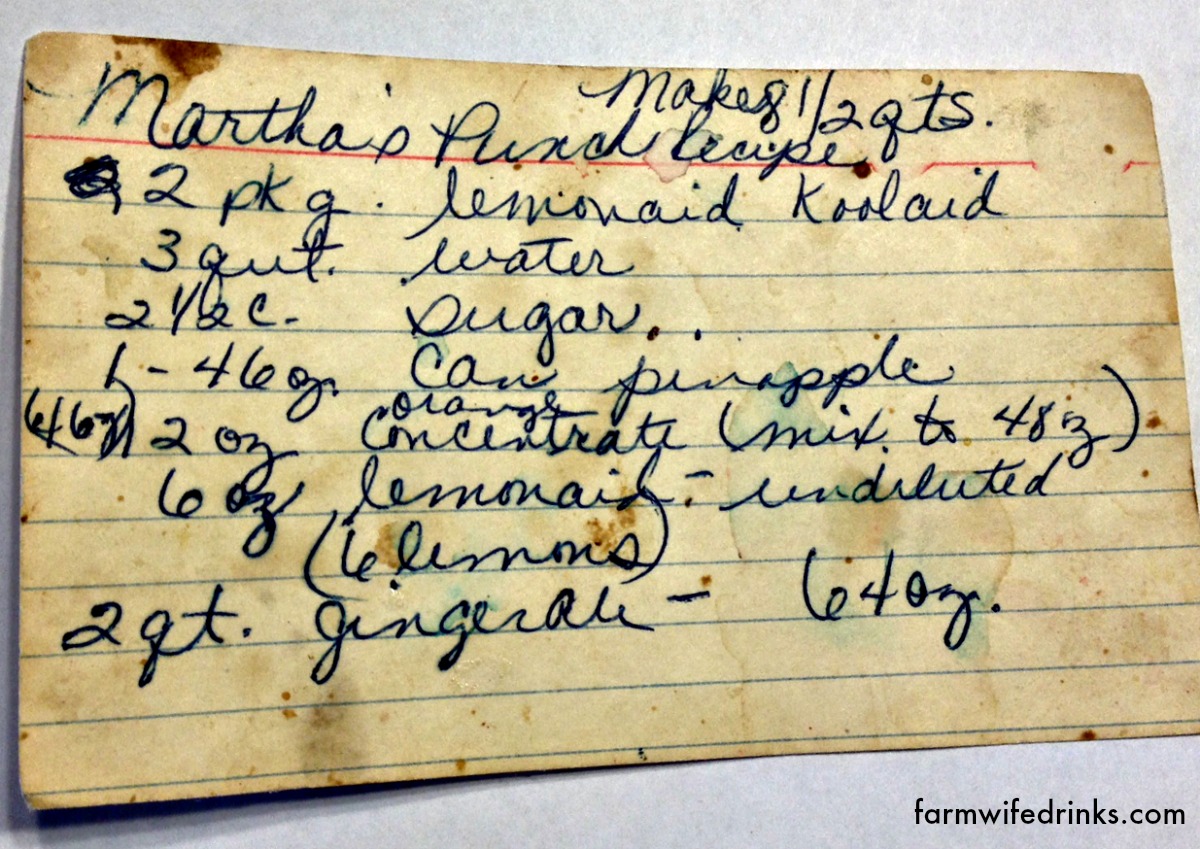 Makes 1/2 qts.
Martha's Punch Recipe
2 pkg. lemonaid Koolaid
3 qut. water
2 1/2 c. sugar..
1 - 46 oz. can pineapple
orange
(46oz) 2 oz concentrate (mix to 48 oz)
6 oz lemonaid - undiluted
(6 lemons)
2 qt. gingerale - 64 oz.
farmwifedrinks.com